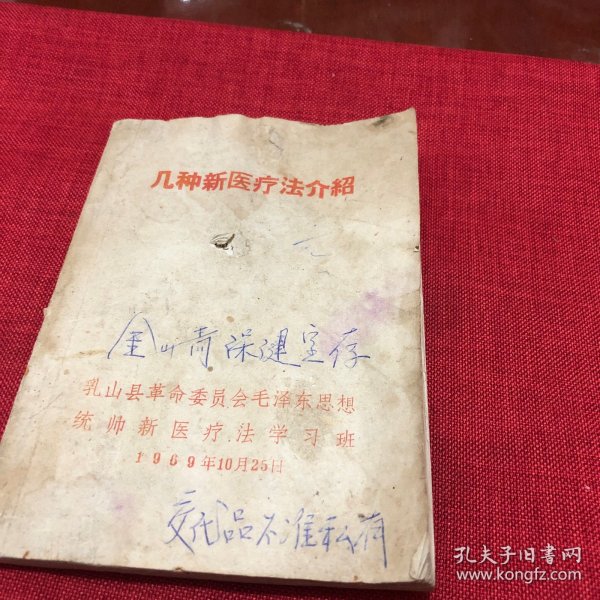 几种新医疗法介紹
金山斋保健室存
乳山县革命委员会毛泽东思想
统帅新医疗法学习班
1969年10月25日
交代品不准私有
孔夫子旧书网
www.kongfz.com